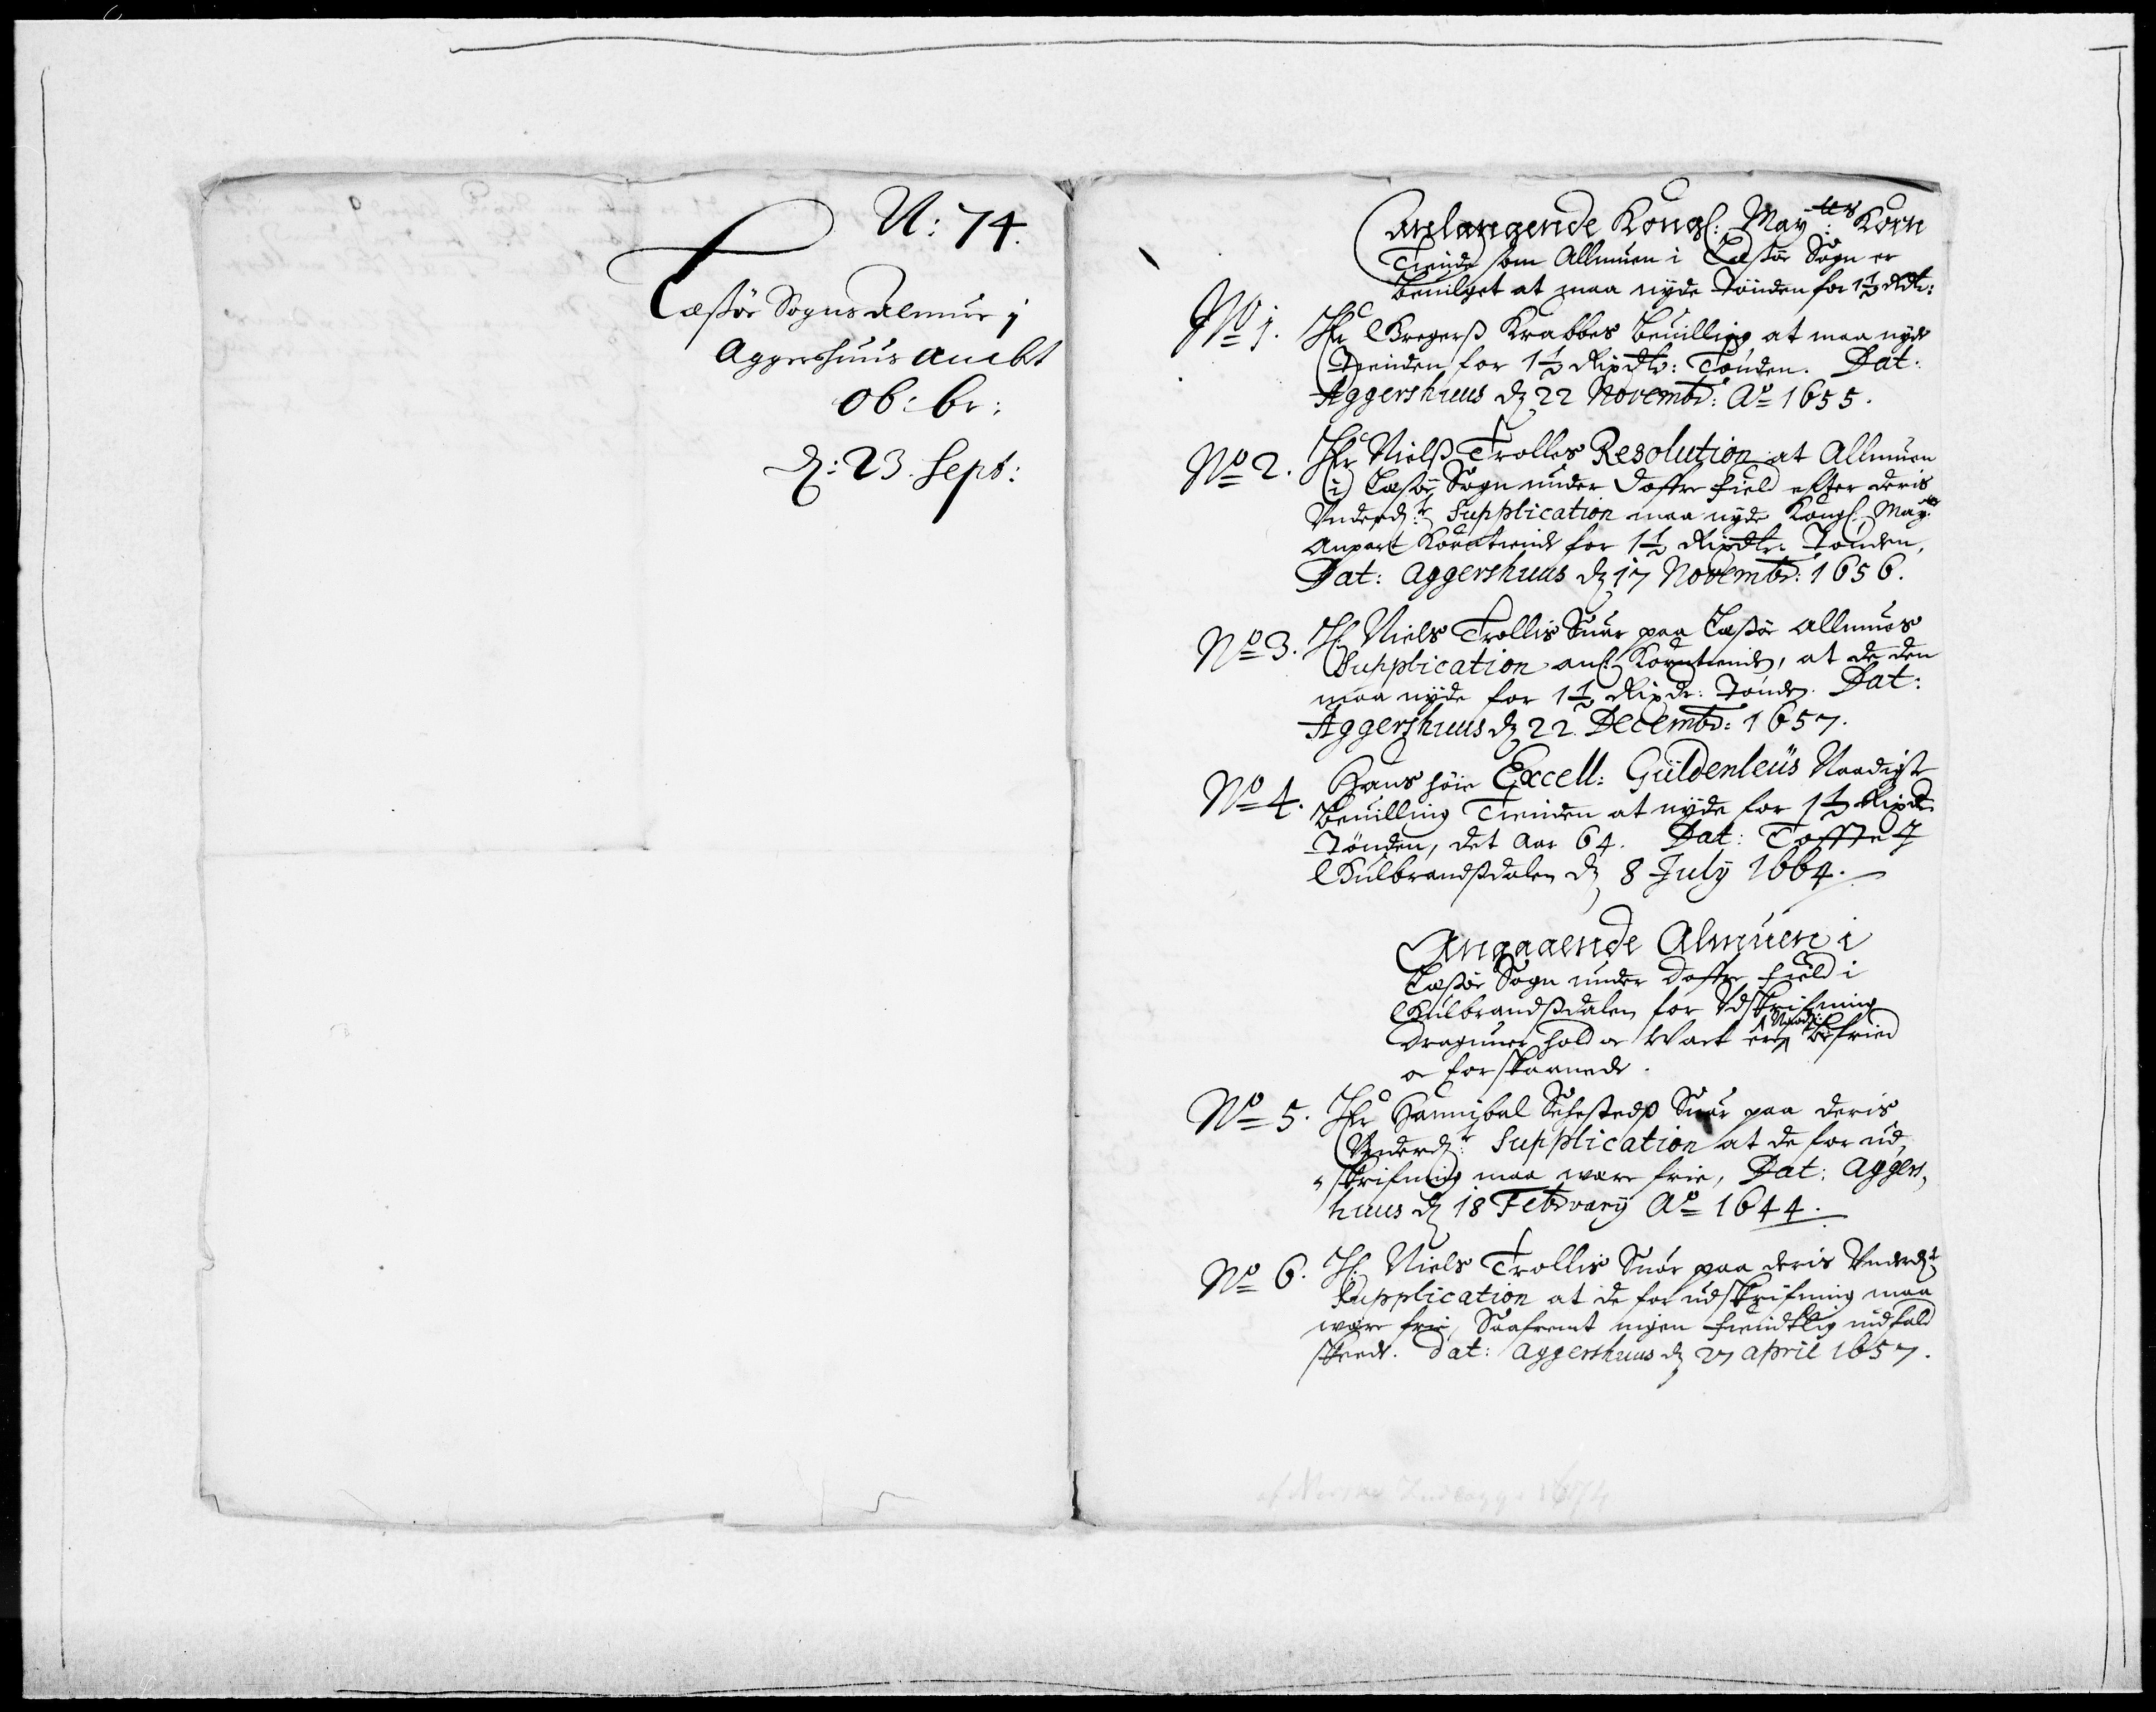 N: 74.
Læssøe Sogns Almue j
Aggershuus Ambt
Ob: br:
d: 23. Sept:
Anlangende Kongl: May:tts Korn
Tiende som Allmuen i Læssøe Sogn er
beuilget at maa nyde Tønden for 1½ Rdr:
No 1. Hr Gregerss Krabbes beuilling at maa nyde
Tienden for 1½ Rixdlr: Tønden. Dat:
Aggershuus d 22 Novembr: Ao 1655.
No 2. Hr Nielss Trolles Resolution at Allmuen
i Læssøe Sogn under Doffre Field efter deris
Underd:e Supplication maa nyde Kongl. May:ts
Anpart Korntiende for 1½ Rixdlr: Tønden,
Dat: Aggershuus d 17 Novembr: 1656.
No 3. H: Niels Trollis Suar paa Læssøe Allmues
Supplication anl: Korntiende, at de den
maa nyde for 1½ Rixdr: Tønden. Dat:
Aggershuus d 22. Decembr: 1657.
No 4. Hans høie Excell: Güldenleüs Naadigste
beuilling Tienden at nyde for 1½ Rixdr
Tønden, det Aar 64. Dat: Toffte J
Gulbrandssdalen d 8 July 1664.
Angaaende Almuen i
Læssøe Sogn under Doffre Field i
Gulbrandssdalen for Udskrifning
Draguner hold oc Wart ere Naadi: befried
oc forskaanede.
No 5. Hr Hannibal Sehestedss Suar paa deris
Underd:e Supplication at de for ud,
skrifning maa were frie, Dat: Aggers,
huus d 18 February Ao 1644.
No 6. H: Niels Trollis Suar paa deris Underd:e
Supplication at de for udskrifning maa
were frie, Saafremt ingen fiendtlig indfald
skeede. Dat: Aggershuus d 27 April 1657.
af Norske Indlæg 1674